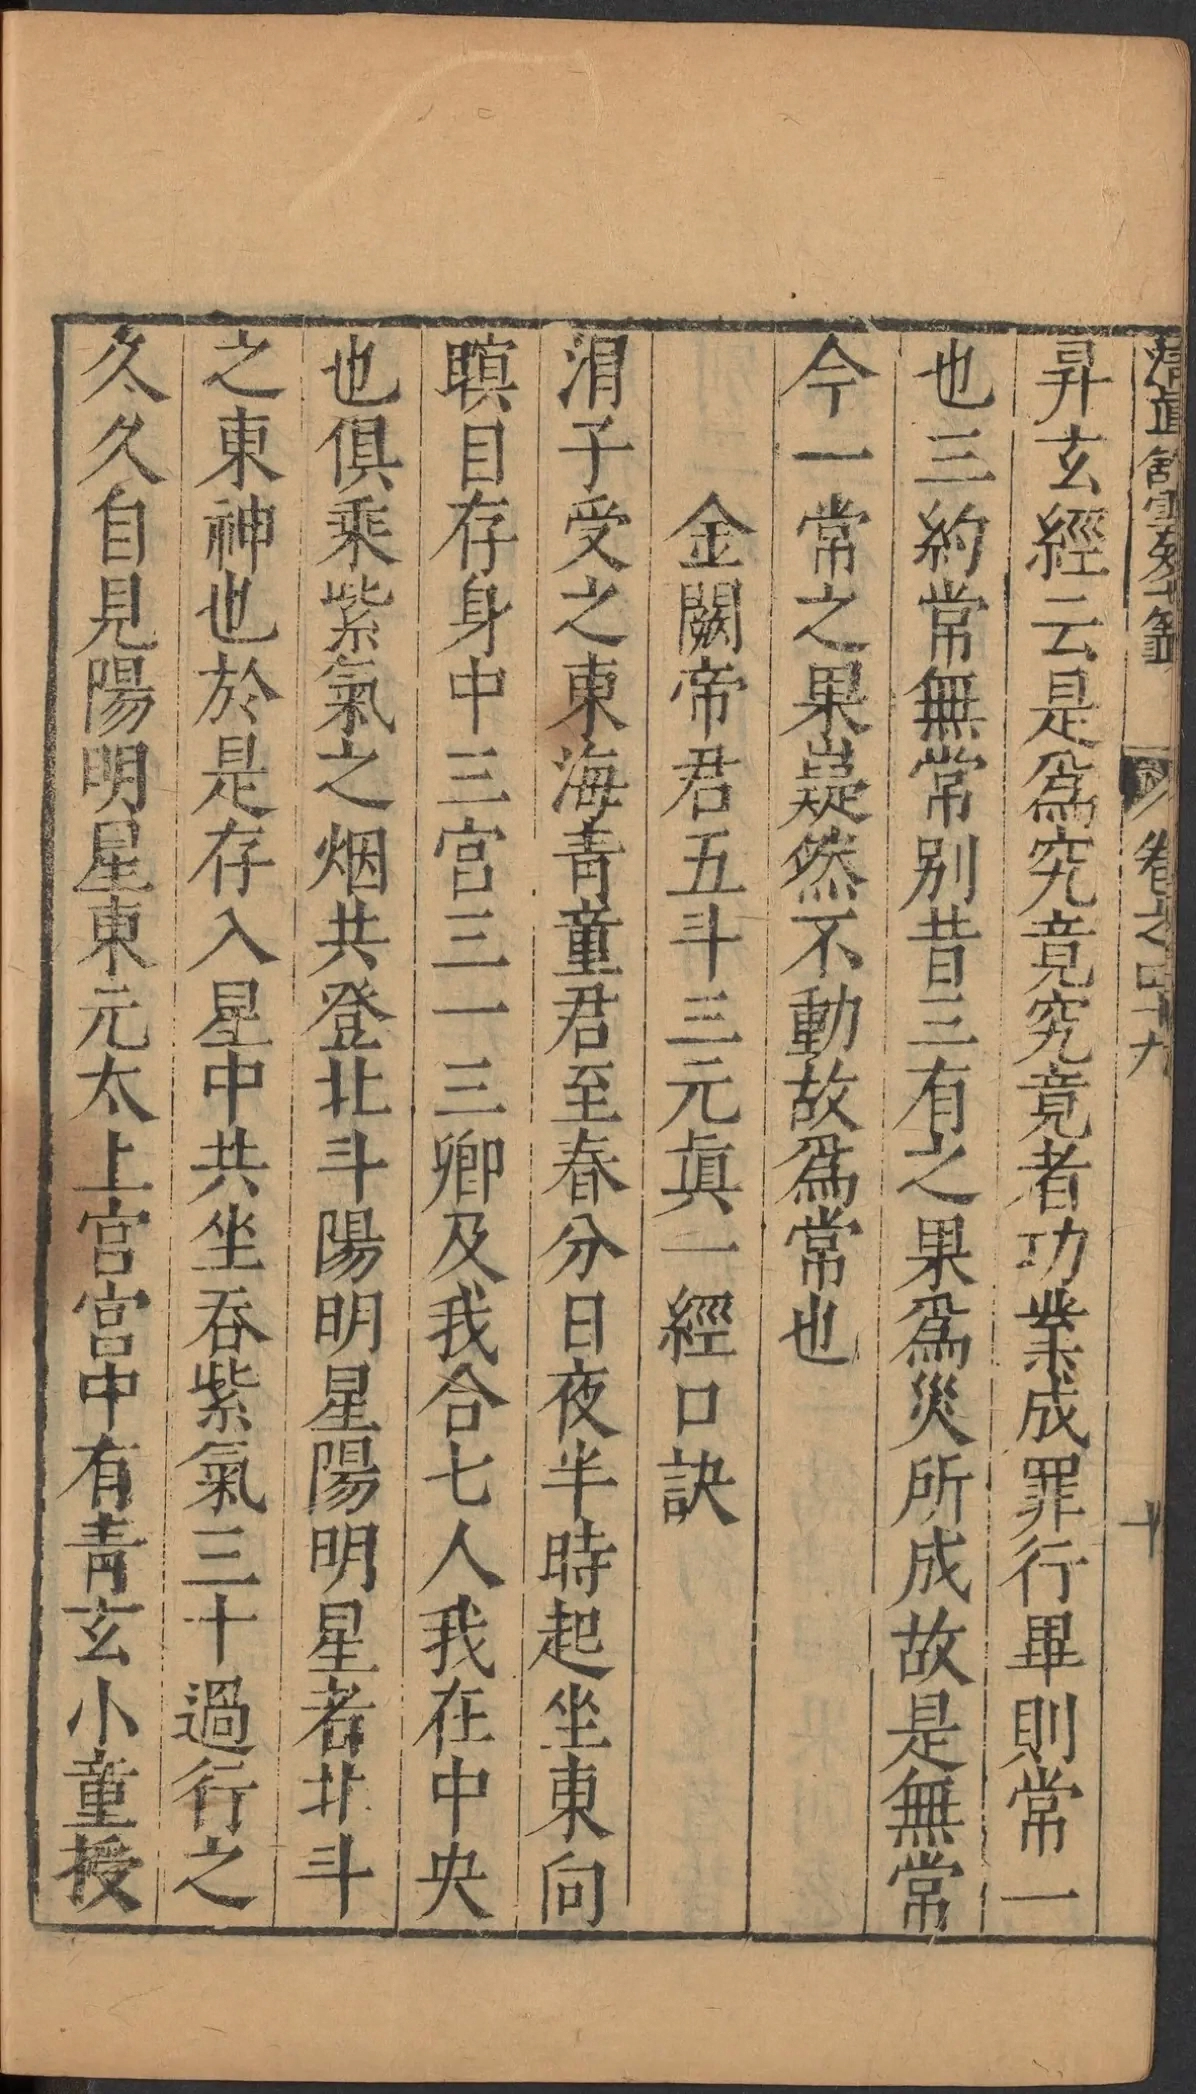 清真館雲笈七籤 卷之四十九 十
昇玄經云是爲究竟究竟者功業成罪行畢則常一
也三約常無常別昔三有之果爲災所成故是無常
今一常之果嶷然不動故爲常也
金闕帝君五斗三元眞一經口訣
涓子受之東海青童君至春分日夜半時起坐東向
瞑目存身中三宮三一三卿及我合七人我在中央
也俱乘紫氣之烟共登北斗陽明星陽明星者北斗
之東神也於是存入星中共坐吞紫氣三十過行之
久久自見陽明星東元太上宮宮中有青玄小童授